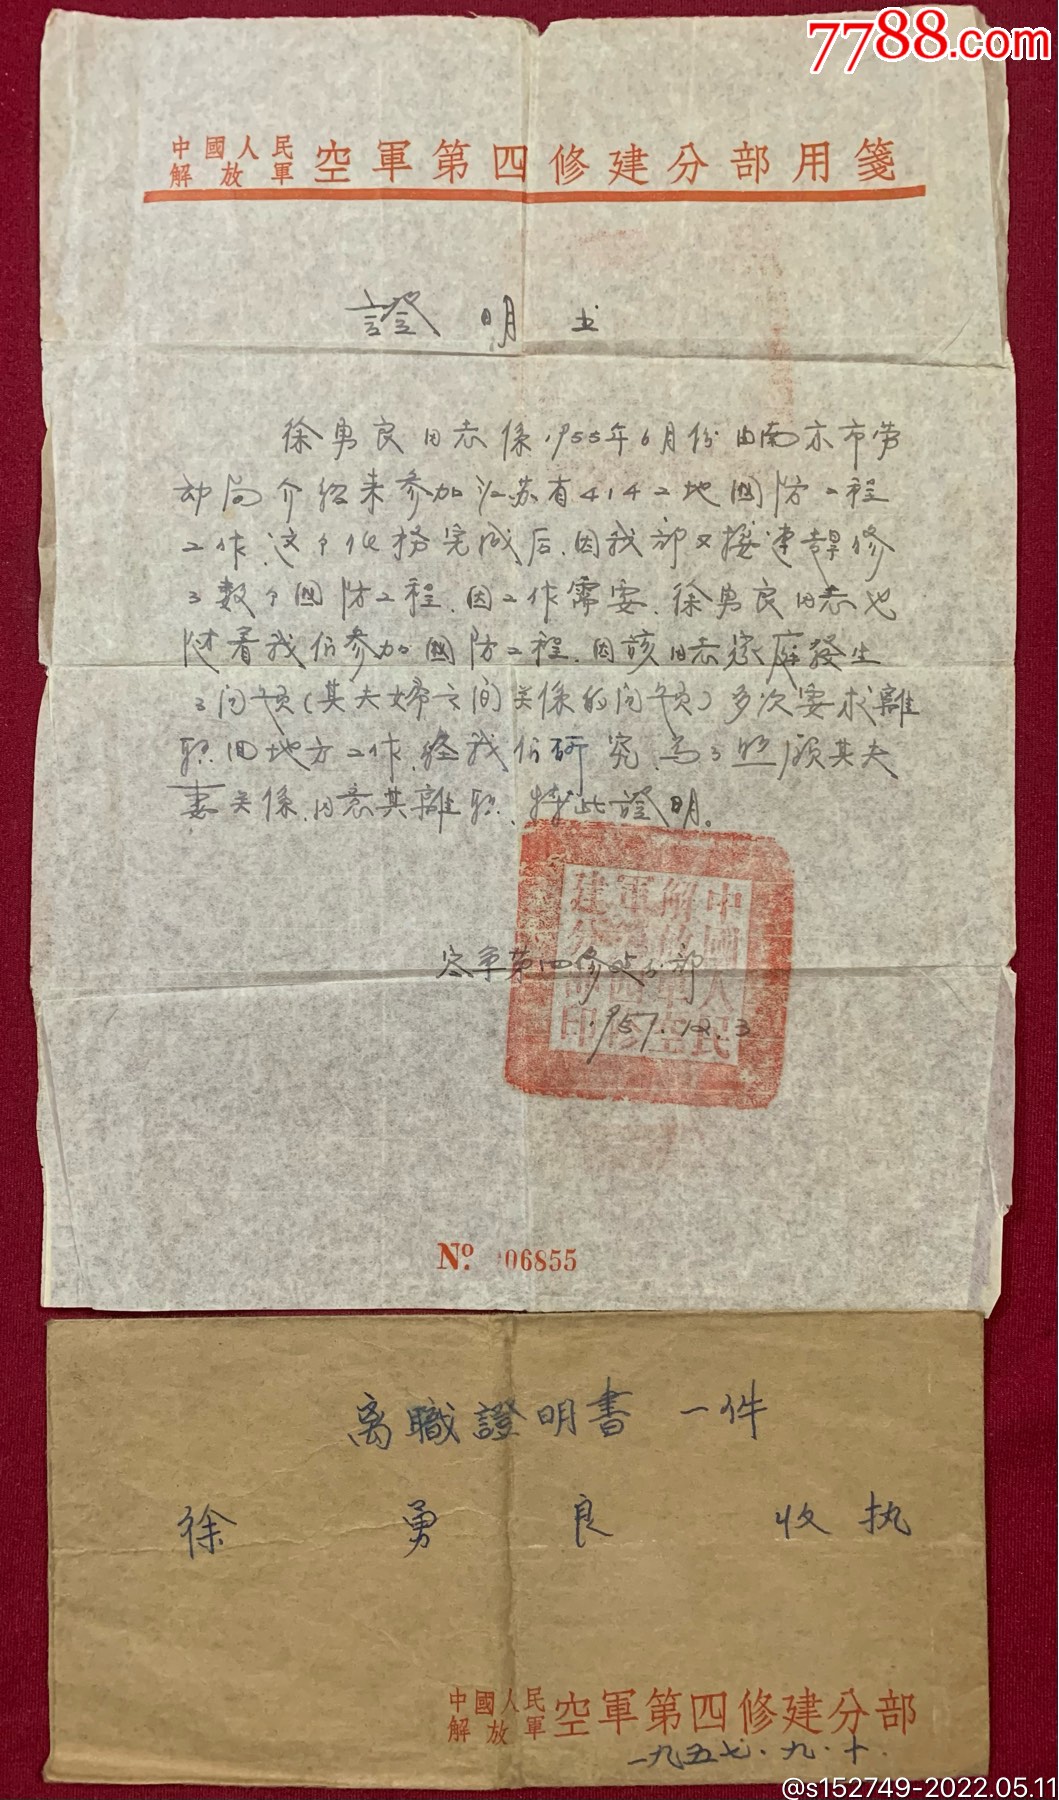 7788.com
中國人民解放軍 空軍第四修建分部用箋
證明书
徐勇良同志係1955年6月份由南京市劳
动局介绍来参加江苏省414工地國防工程
工作.这个任務完成后.因我部又接連
了数个國防工程.因工作需要.徐勇良同志也
随着我们参加國防工程.因該同志家庭發生
了问题(其夫婦之间关係的问题)多次要求離
职回地方工作.经我们研究.为了照顾其夫
妻关係.同意其離职.特此證明。
空军第四修建分部
1957.12.3
中國人民解放軍空軍第四修建分部印
No. 06855
离職證明書一件
徐勇良 收执
中國人民解放軍 空軍第四修建分部
一九五七.九.十.
@s152749-2022.05.11